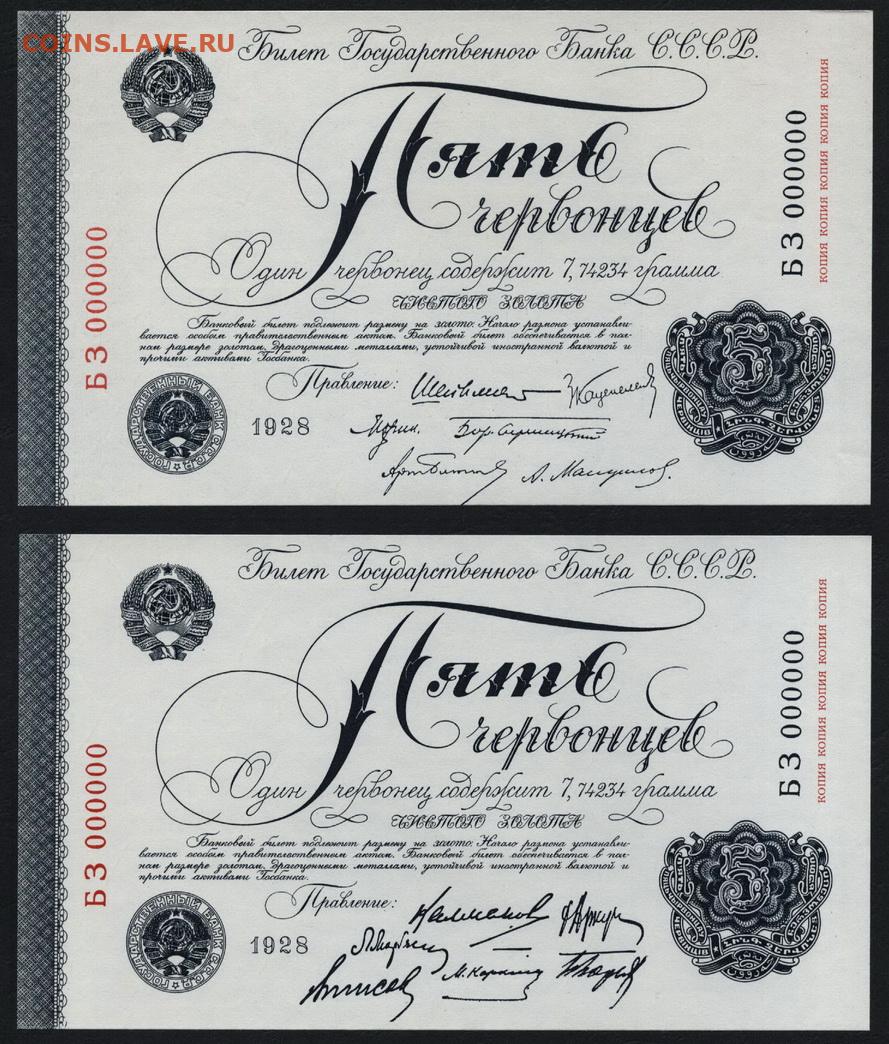 COINS.LAVE.RU
Билет Государственного Банка С.С.С.Р.
Пять
червонцев
Один червонец содержит 7,74234 грамма
чистого золота
Банковый билет подлежит размену на золото. Начало размена устанавли-
вается особым правительственным актом. Банковый билет обеспечивается в пол-
ном размере золотом, драгоценными металлами, устойчивой иностранной валютой и
прочими активами Госбанка.
Правление:
1928
БЗ 000000
БЗ 000000
КОПИЯ КОПИЯ КОПИЯ КОПИЯ
ГОСУДАРСТВЕННЫЙ БАНК СССР
5
Билет Государственного Банка С.С.С.Р.
Пять
червонцев
Один червонец содержит 7,74234 грамма
чистого золота
Банковый билет подлежит размену на золото. Начало размена устанавли-
вается особым правительственным актом. Банковый билет обеспечивается в пол-
ном размере золотом, драгоценными металлами, устойчивой иностранной валютой и
прочими активами Госбанка.
Правление:
1928
БЗ 000000
БЗ 000000
КОПИЯ КОПИЯ КОПИЯ КОПИЯ
ГОСУДАРСТВЕННЫЙ БАНК СССР
5